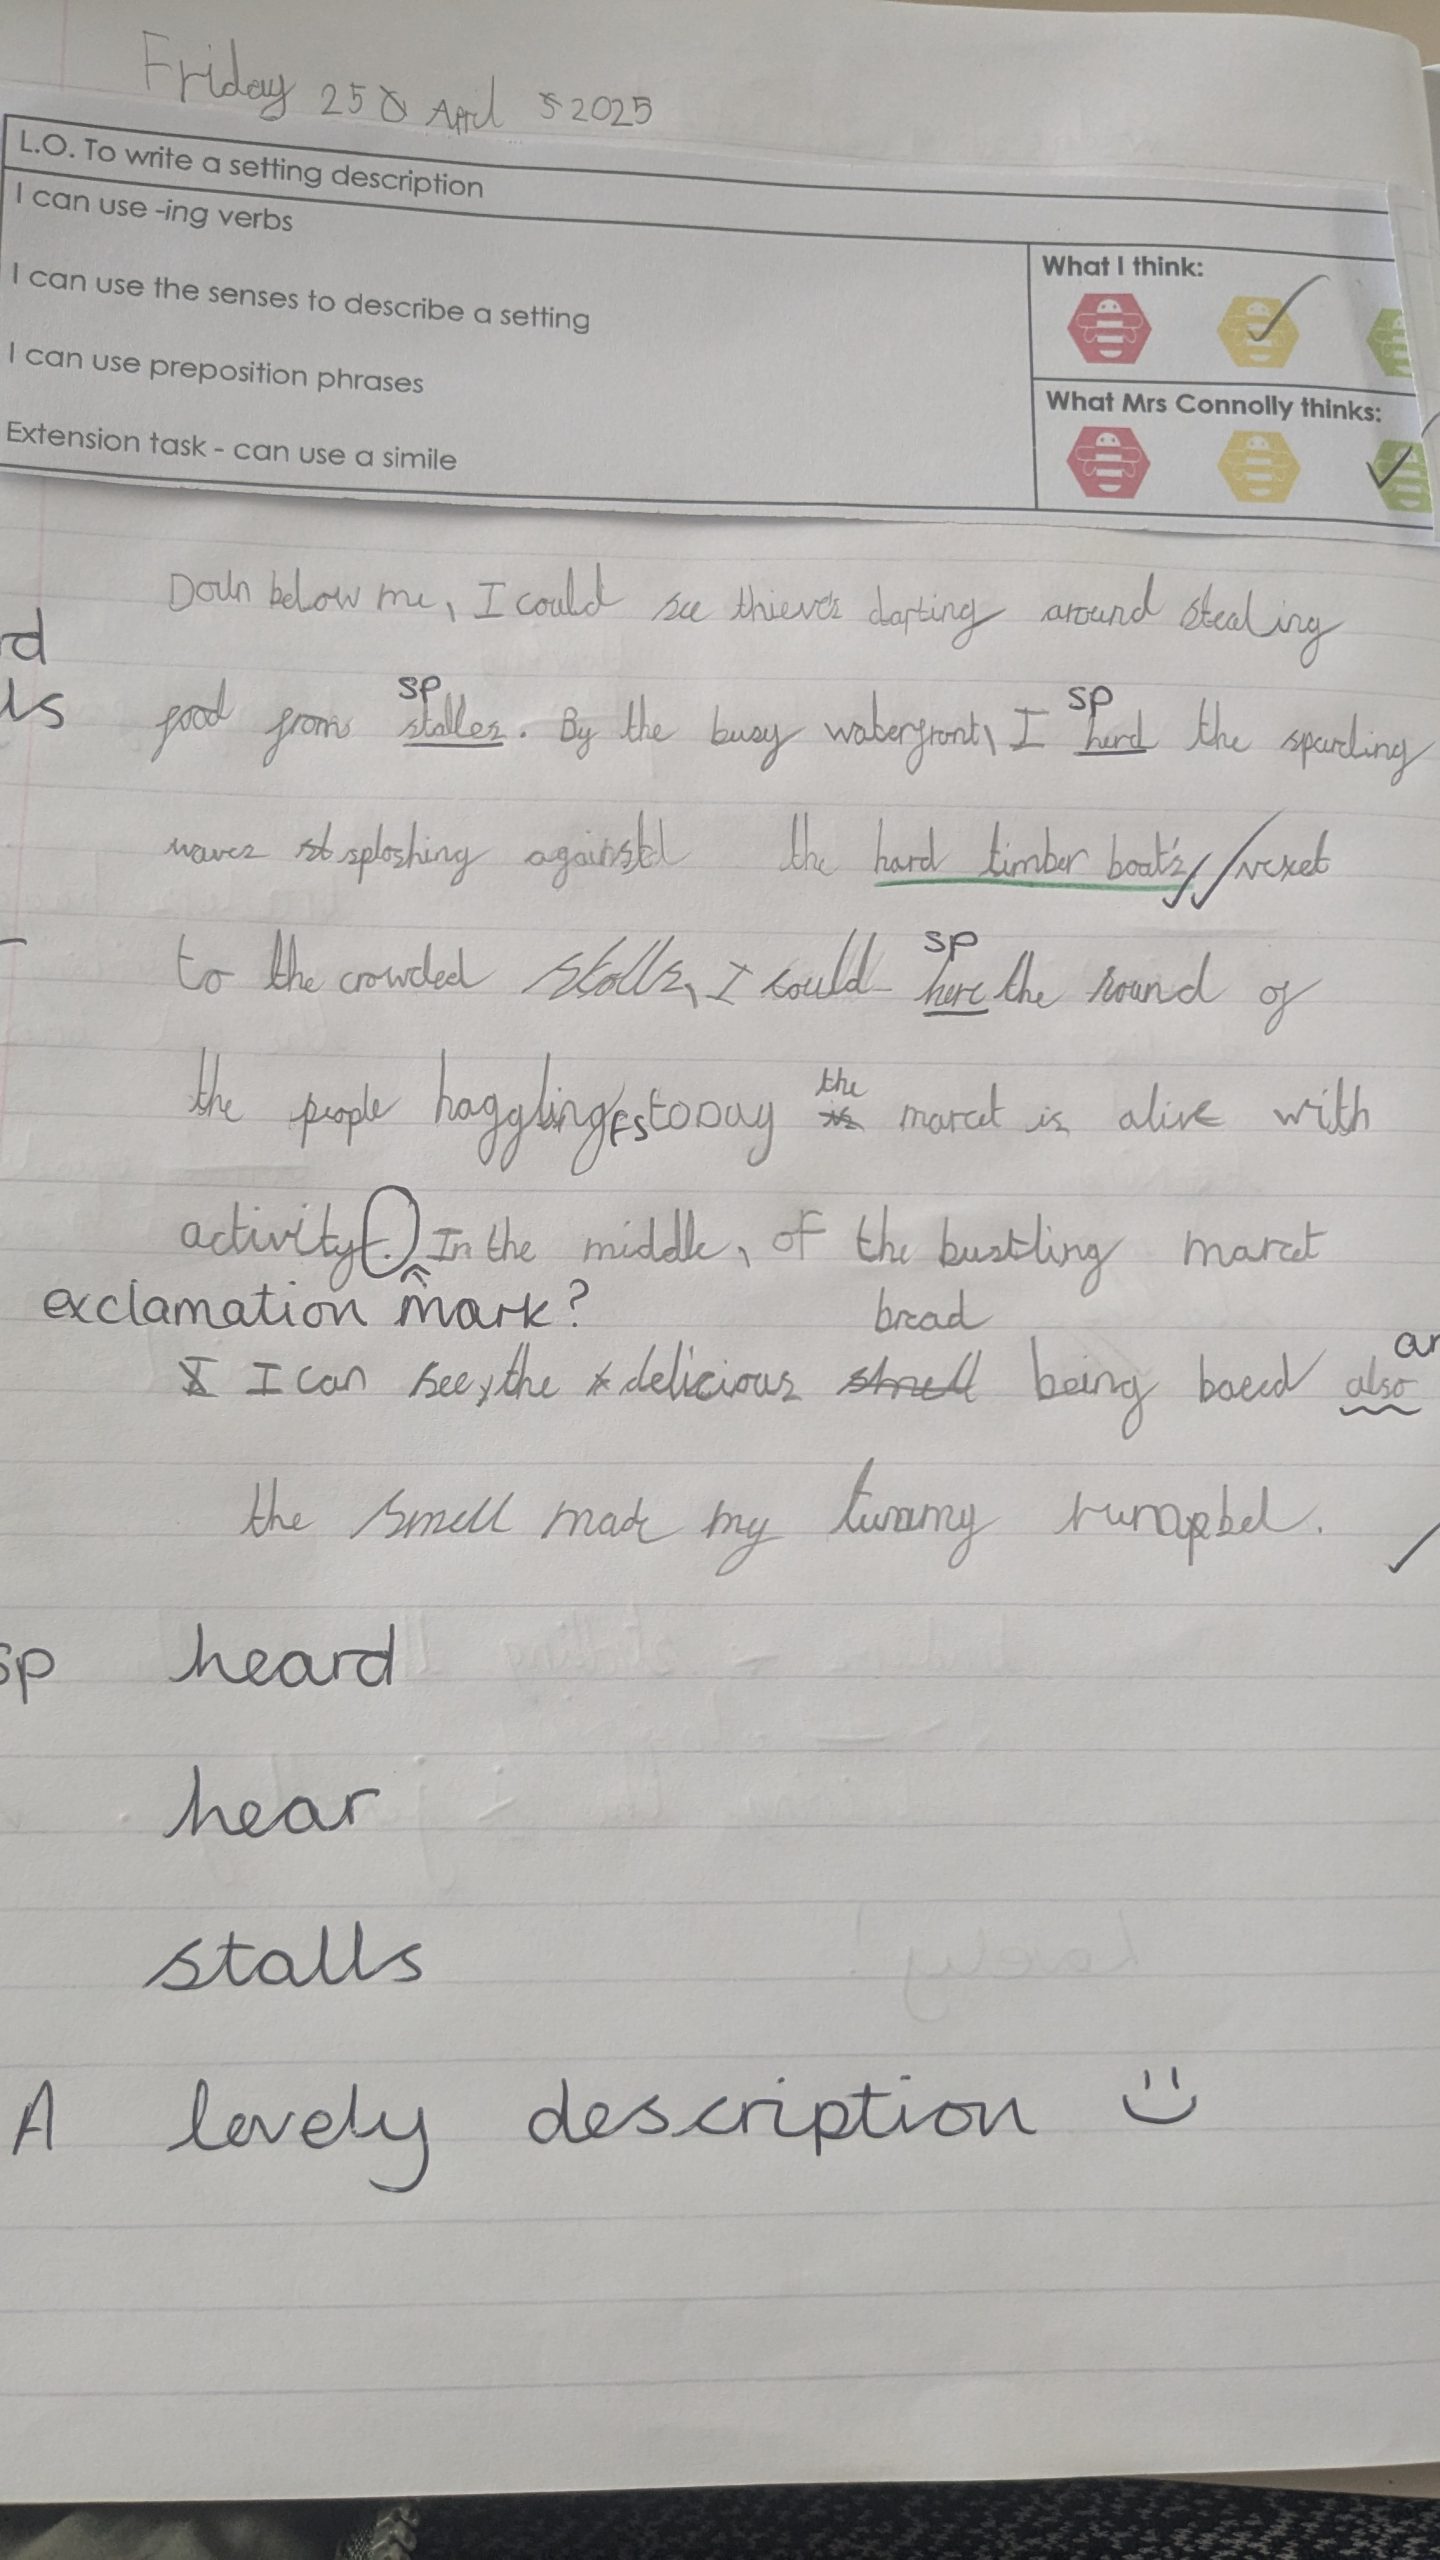 Friday 25 April 2025
L.O. To write a setting description
I can use -ing verbs
I can use the senses to describe a setting
I can use preposition phrases
Extension task - can use a simile
What I think:
What Mrs Connolly thinks:
Down below me, I could see thieves darting around stealing
rd
ls
sp
sp
food from stalles. By the busy waterfront, I herd the sparcling
waves sploshing against the hard timber boat's // nexet
sp
to the crowded stalls, I could here the sound of
the
the people haggling, FS today is marcet is alive with
activity. In the middle, of the bustling marcet
exclamation mark?
bread
an
I can see, the delicious smell being baced also
the smell made my tummy
sp heard
hear
stalls
A lovely description